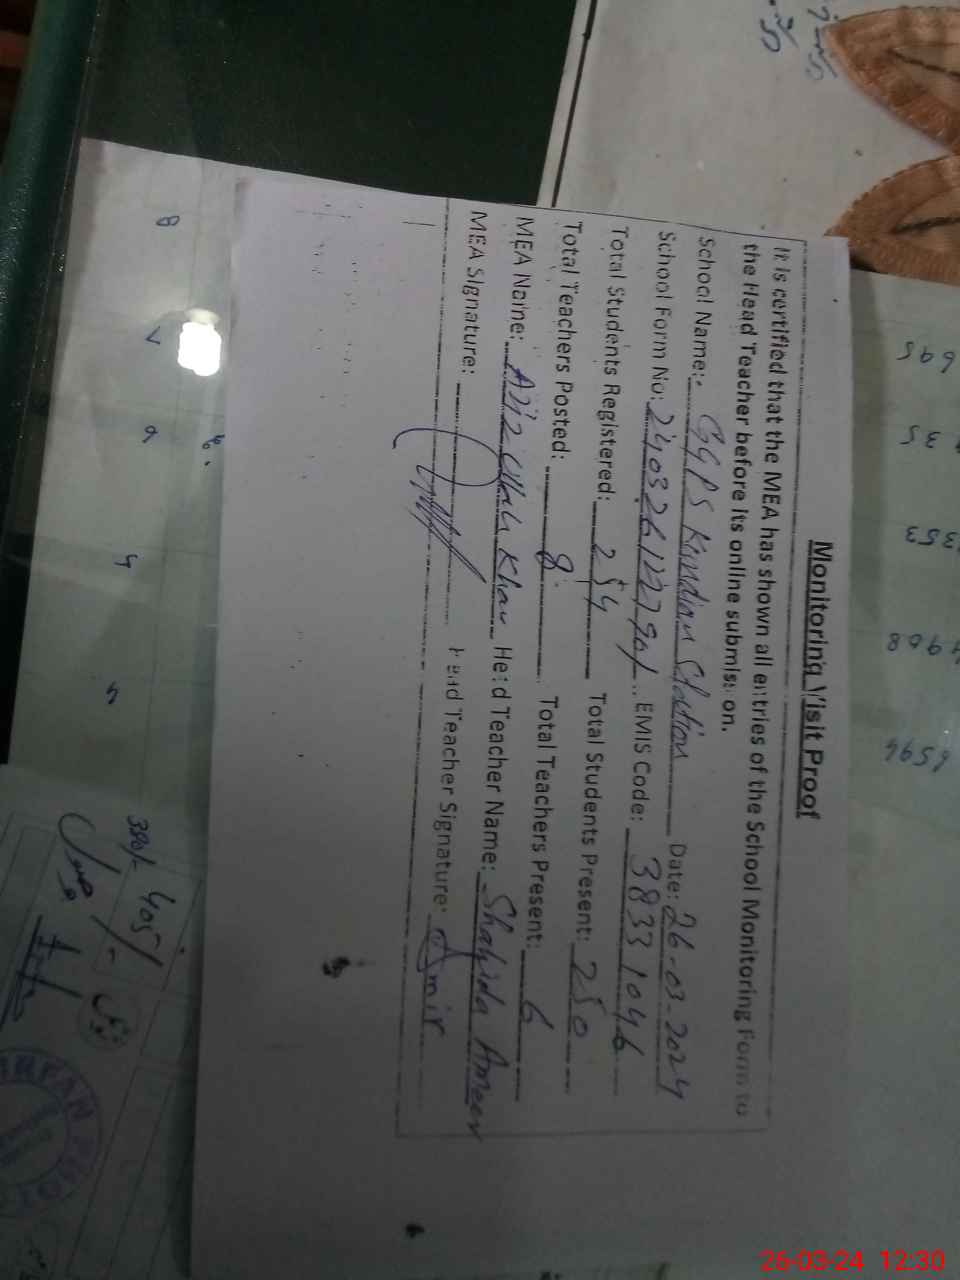 Monitoring Visit Proof
It is certified that the MEA has shown all entries of the School Monitoring Form to
the Head Teacher before its online submission.
School Name: GGPS Kundian Station Date: 26-03-2024
School Form No: EMIS Code: 38331046
Total Students Registered: 254 Total Students Present: 250
Total Teachers Posted: 8 Total Teachers Present: 6
MEA Name: Aziz Ullah Khan Head Teacher Name: Shahida Ameer
MEA Signature: Head Teacher Signature:
695
35
353
6594
405/-
26-03-24 12:30